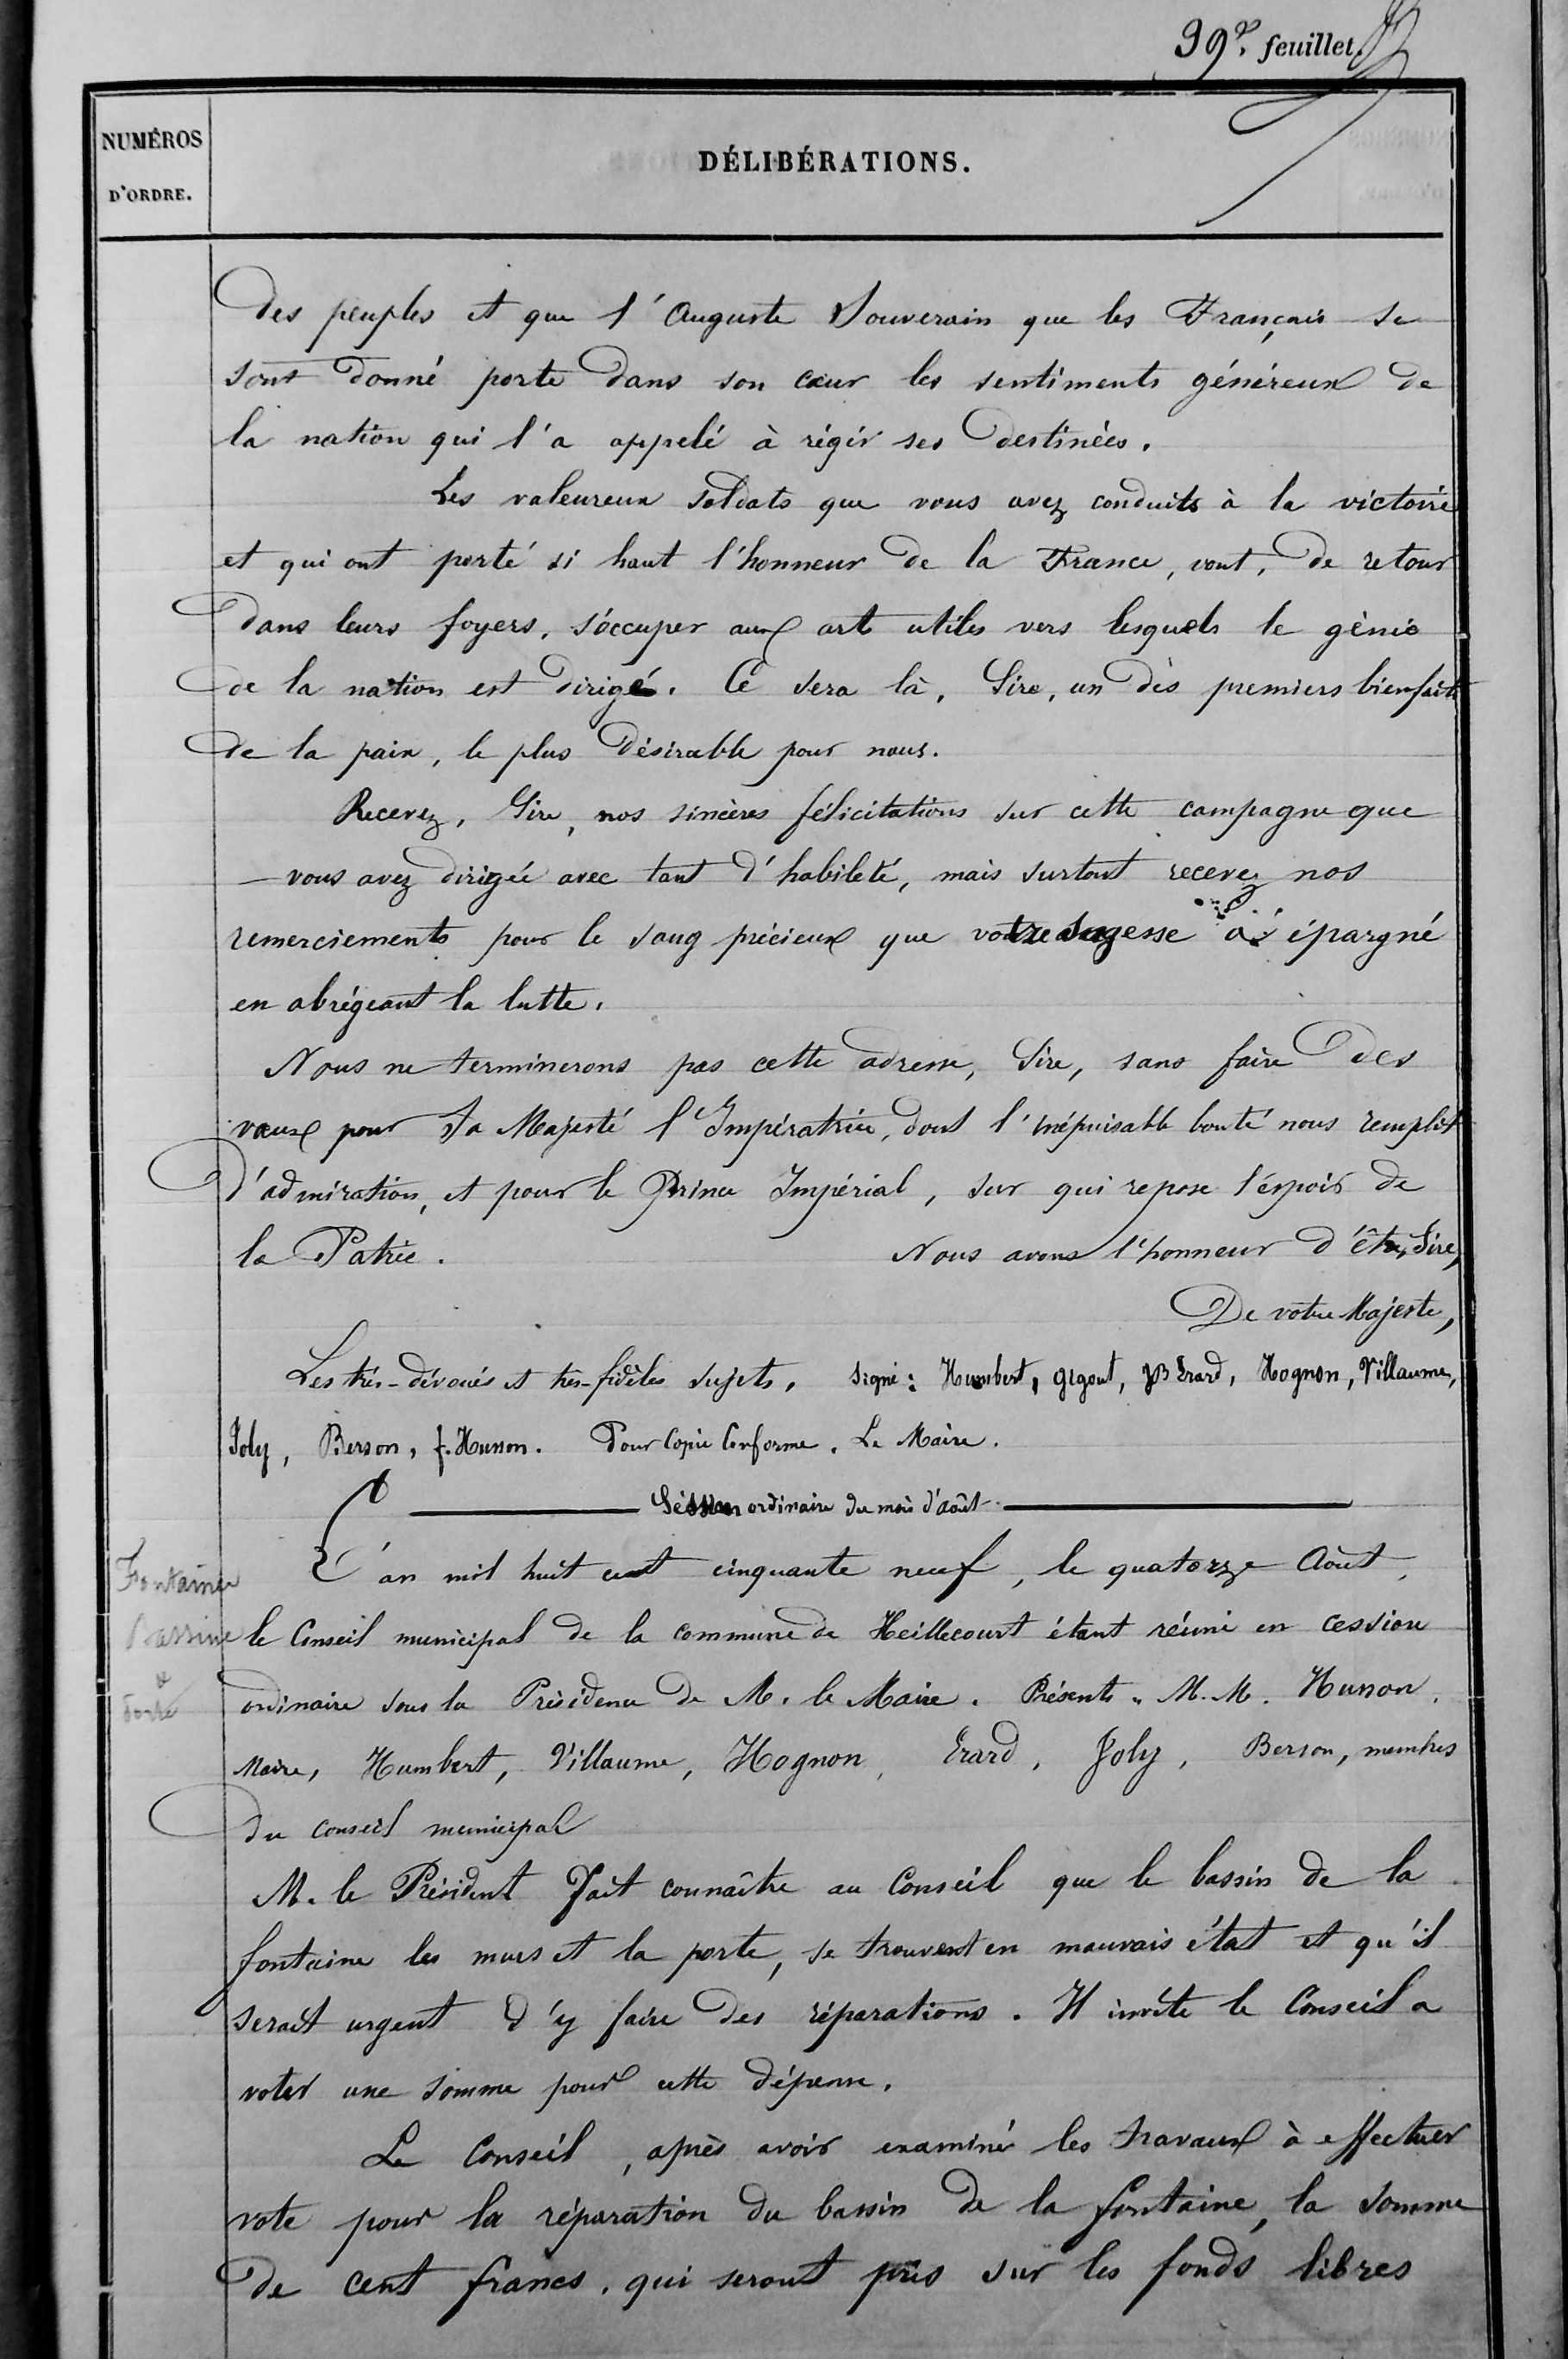 39e. feuillet.
NUMÉROS
D'ORDRE.
DÉLIBÉRATIONS.
des peuples et que l'Auguste Souverain que les Français se
sont donné porte dans son cœur les sentiments généreux de
la nation qui l'a appelé à régir ses destinées.
Les valeureux soldats que vous avez conduits à la victoire
et qui ont porté si haut l'honneur de la France, vont, de retour
dans leurs foyers, s'occuper aux art utiles vers lesquels le génie
de la nation est dirigé. Ce sera là, Sire, un des premiers bienfaits
de la paix, le plus désirable pour nous.
Recevez, Sire, nos sincères félicitations sur cette campagne que
vous avez dirigée avec tant d'habileté, mais surtout recevez nos
remerciements pour le sang précieux que votre sagesse a épargné
en abrégeant la lutte.
Nous ne terminerons pas cette adresse, Sire, sans faire des
vœux pour Sa Majesté l'Impératrice, dont l'inépuisable bonté nous remplit
d'admiration, et pour le Prince Impérial, sur qui repose l'espoir de
la Patrie. Nous avons l'honneur d'être, Sire,
De votre Majesté,
Les très-dévoués et très-fidèles sujets. Signé : Humbert, Gigout, JB Erard, Hognon, Villaume,
Joly, Berson, f. Husson. Pour Copie Conforme. Le Maire.
Session ordinaire du mois d'août
L'an mil huit cent cinquante neuf, le quatorze Août,
Fontaine
Bassine
&
Porte
le Conseil municipal de la commune de Heillecourt étant réuni en cession
ordinaire sous la Présidence de M. le Maire. Présents M.M. Husson,
Maire, Humbert, Villaume, Hognon, Erard, Joly, Berson, membres
du conseil municipal
M. le Président fait connaître au Conseil que le bassin de la
fontaine les murs et la porte, se trouvent en mauvais état et qu'il
serait urgent d'y faire des réparations. Il invite le Conseil a
voter une somme pour cette dépense.
Le Conseil, après avoir examiné les travaux à effectuer
vote pour la réparation du bassin de la fontaine, la somme
de cent francs, qui seront pris sur les fonds libres